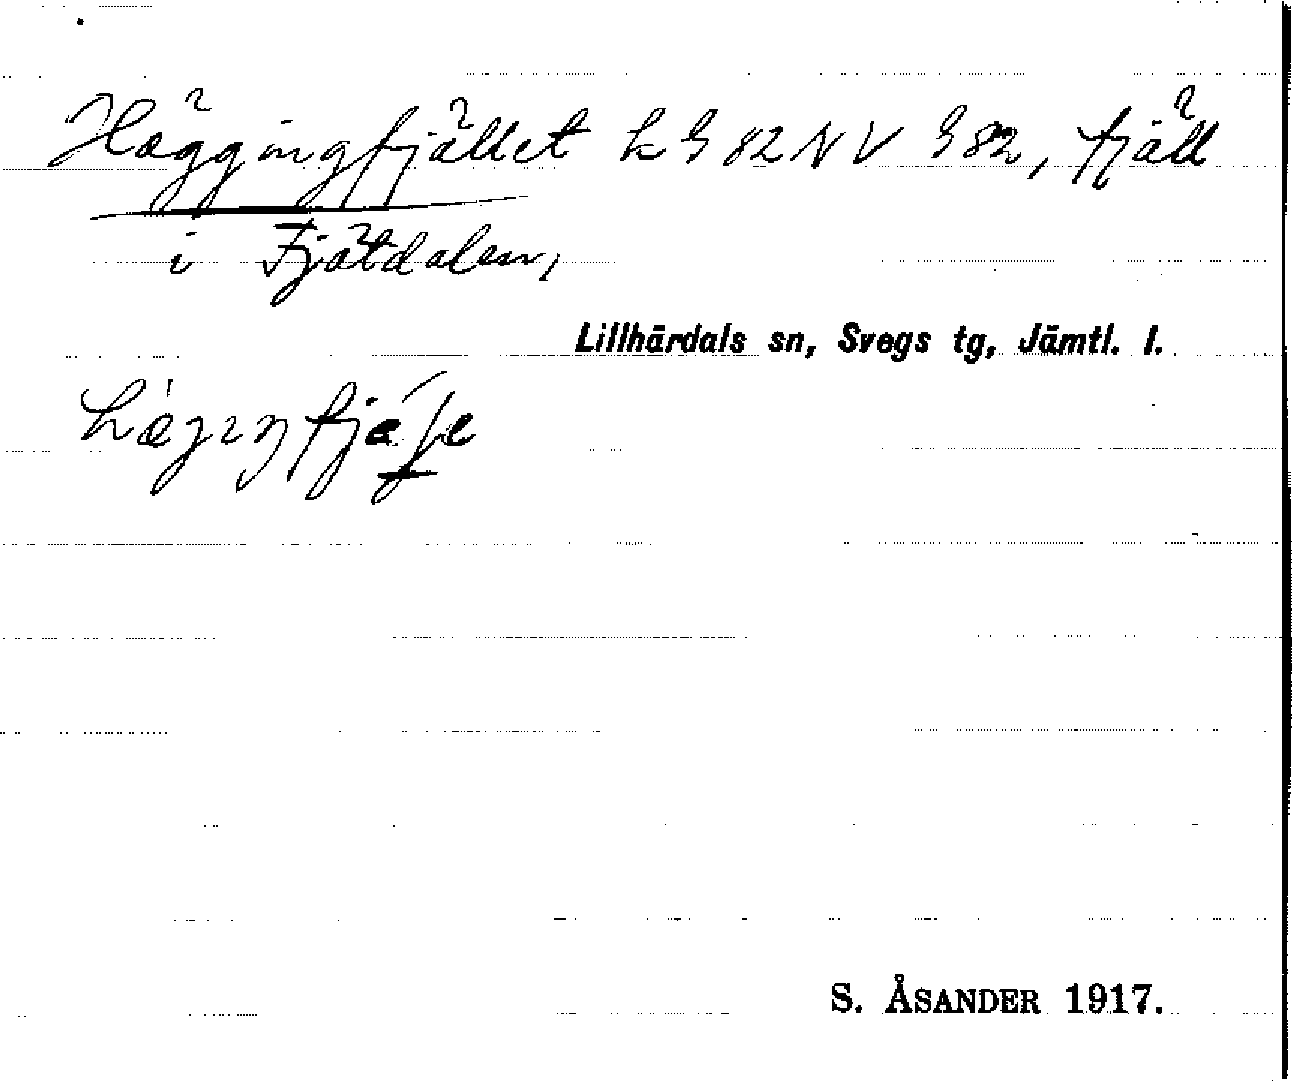 Häggingfjället k G 82 N V G 82, fjäll
i Fjätdalen,
Lillhärdals sn, Svegs tg, Jämtl. l.
S. ÅSANDER 1917.